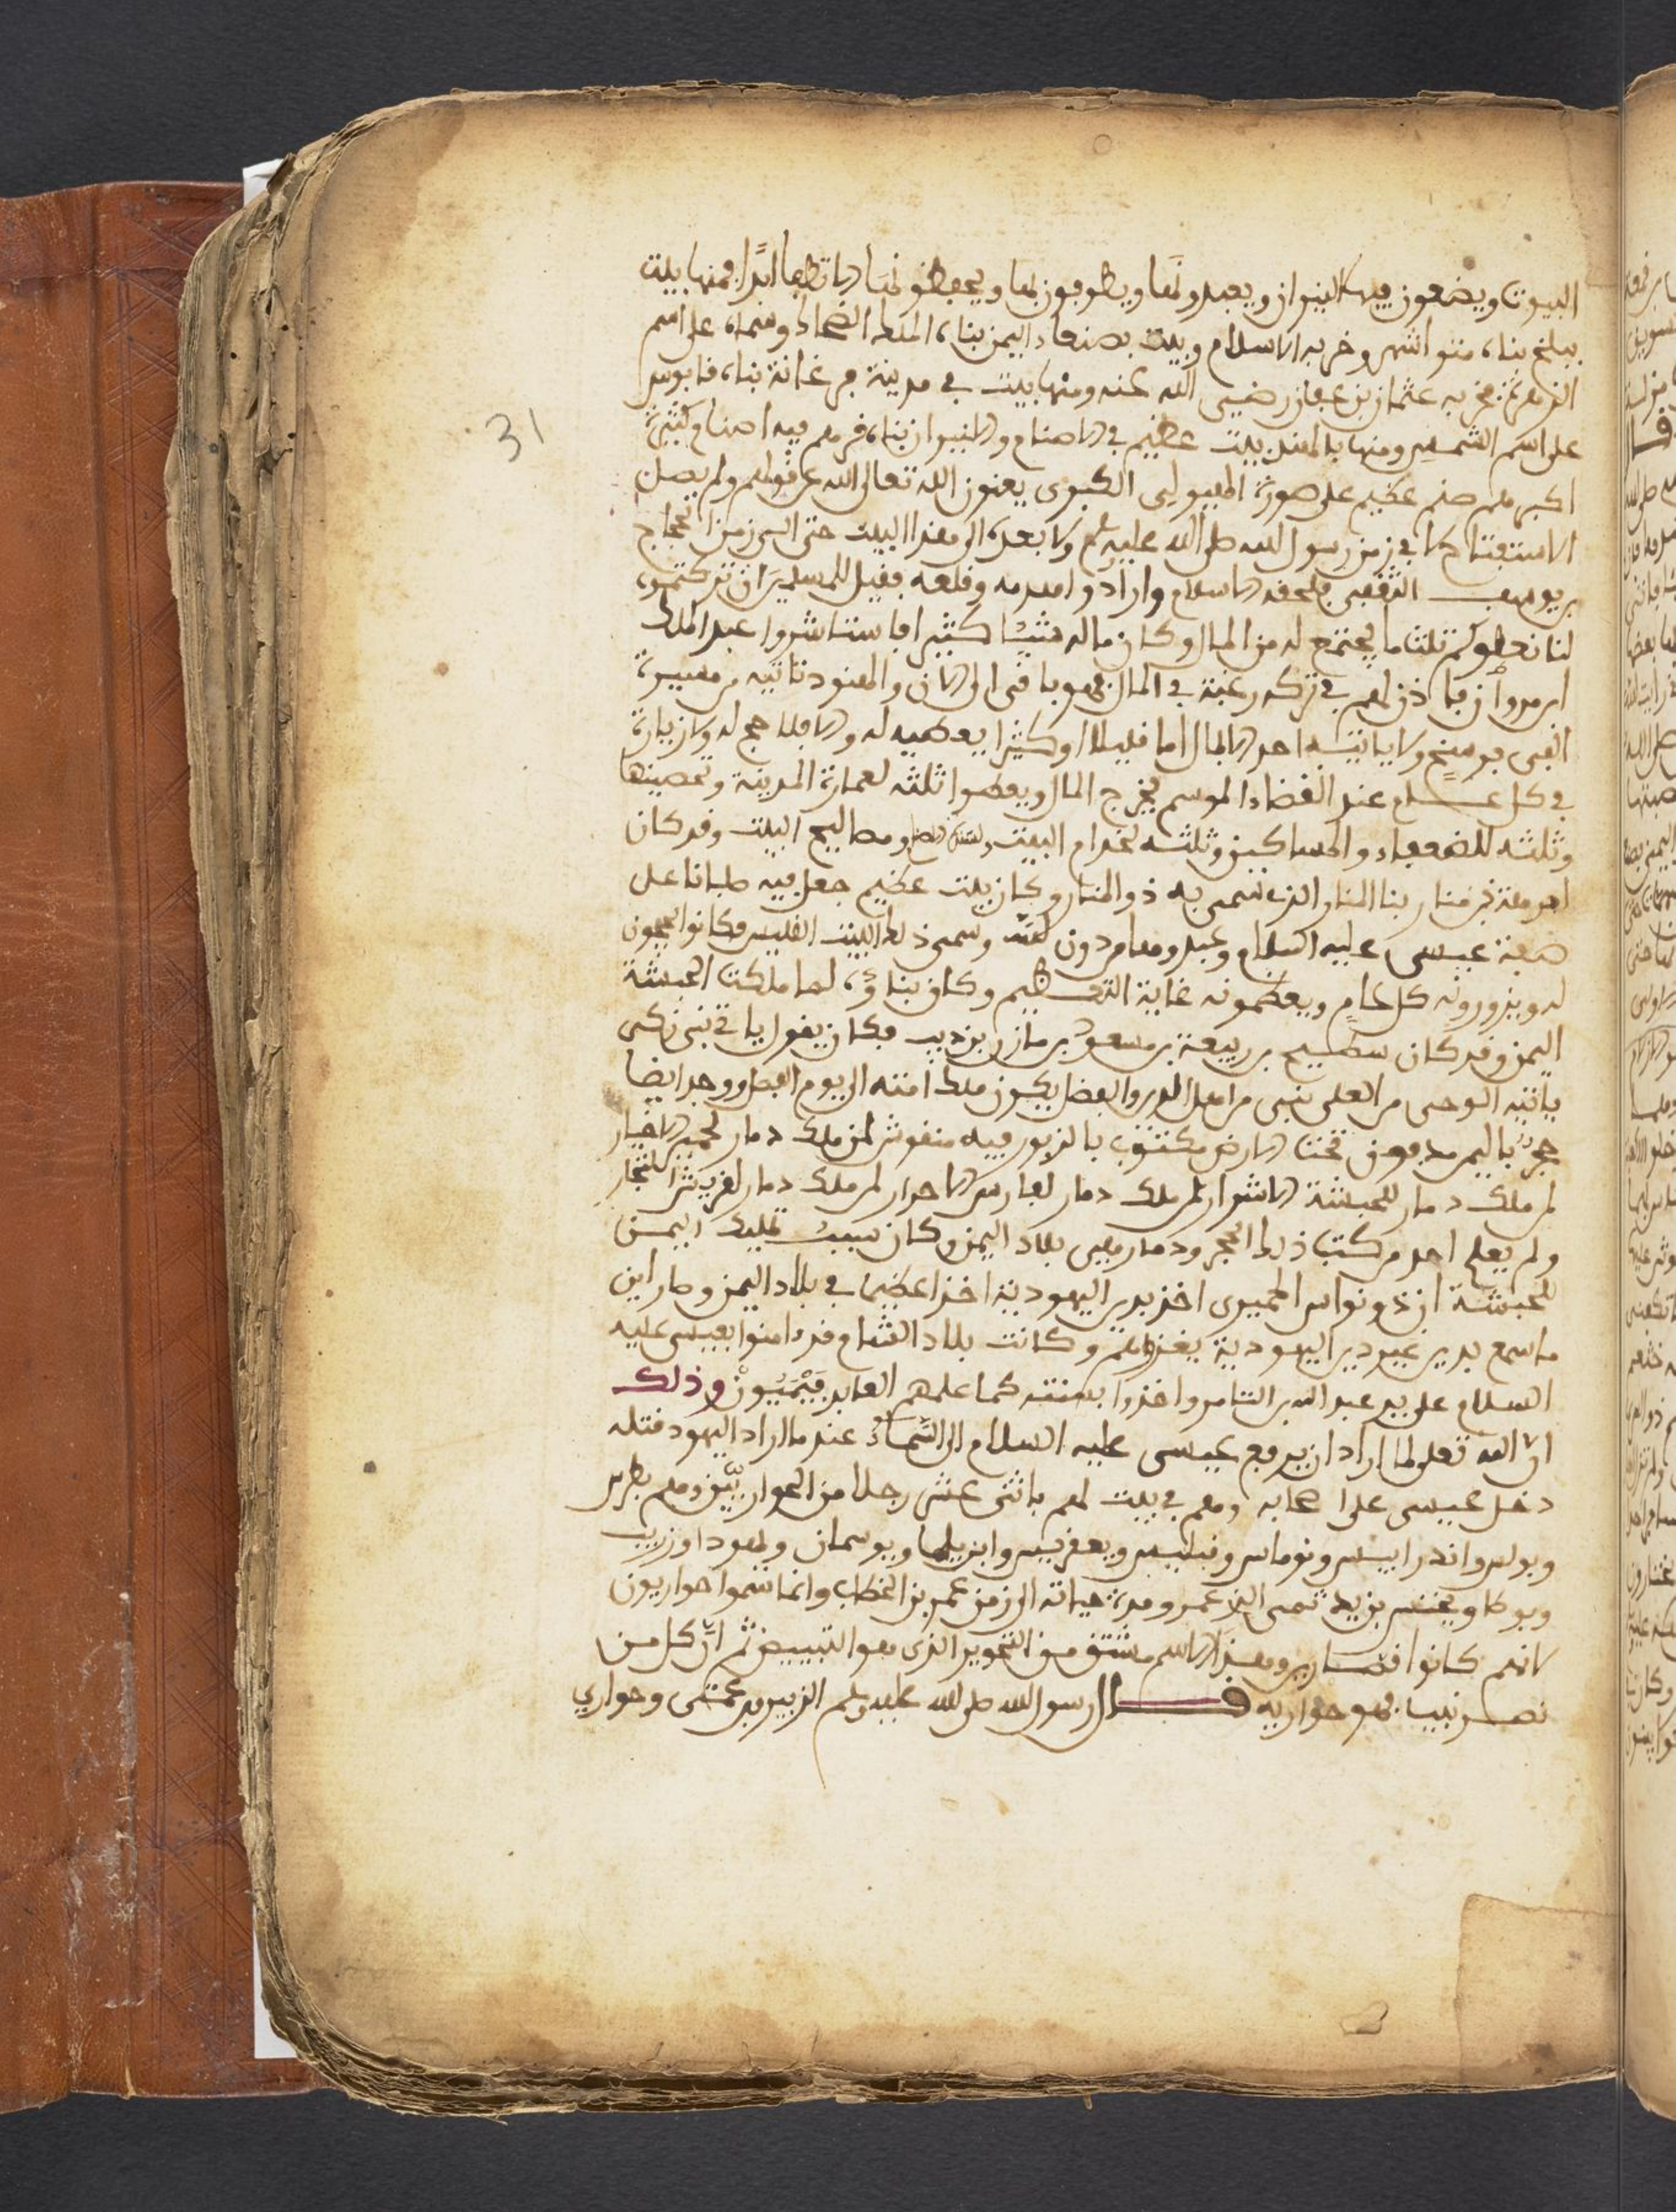 البيوت ويضعون فيها النيران ويعبدونها ويطوفون لها ويحفظونها لا تطفا ابدًا فمنها بيت
ببلخ بناه منواشهر وخربه الاسلام وبيت بصنعاء اليمن بناه الملك الضحاك وسماه على اسم
الزهرة فخربه عثمان بن عفان رضي الله عنه ومنها بيت في مدينة فرغانة بناه قابوس
على اسم الشمس ومنها بالهند بيت عظيم في الاصنام والنيران بناه فرمم فيه اصنام كثيرة
اكبرهم صنم عظيم على صورة الهيولى الكبرى يعنون الله تعالى الله عن قولهم ولم يصل
الاستفتاح في زمن رسول الله صلى الله عليه وسلم ولا بعده الى هذا البيت حتى الى زمن الحجاج
بن يوسف الثقفي فلحقه الاسلام وارادوا هدمه وقلعه فقيل للمسلمين ان تركتموه
لنا نعطوكم ثلث ما يجتمع له من المال وكان ماله شيئا كثيرا فاستشاروا عبد الملك
ابن مروان فاذن لهم في تركه رغبة في المال فهو باقي الى الان والهنود تاتيه من مسيرة
الفي فرسخ ولا ياتيه احد الا بمال اما قليلا او كثيرا يعطيه له والا فلا حج له ولا زيارة
في كل عام عند انقضاء الموسم يخرج المال ويعطوا ثلثه لعمارة المدينة وتحصينها
وثلثه للضعفاء والمساكين وثلثه لخدام البيت ومصالح البيت وقد كان
ابرهة ذو منار بنا المنار الذي سمي به ذو المنار وكان بيت عظيم جعل فيه صلبانا على
صفة عيسى عليه السلام وعبدوها من دون الله وسمي ذلك البيت القليس فكانوا يحجون
له ويزورونه كل عام ويعظمونه غاية التعظيم وكان بناؤه لما ملكت الحبشة
اليمن وقد كان سطيح بن ربيعة بن مسعود بن مازن بن ذيب فكان يقول ياتي نبي زكي
ياتيه الوحي من العلي نبي من اهل الدين والفضل يكون ملك امته الى يوم الفصل ووجد ايضا
حجر باليمن مدفون تحت الارض مكتوب بالزبور فيه منقوش لمن ملك ذمار لحمير الاخيار
لمن ملك ذمار للحبشة الاشرار لمن ملك ذمار لفارس الاحرار لمن ملك ذمار لقريش التجار
ولم يعلم احد من كتب ذلك الحجر وذمار هي بلاد اليمن وكان سبب تمليك اليمن
للحبشة ان ذو نواس الحميري اخذ بدين اليهودية اخذا عظيما في بلاد اليمن وصار اين
ما سمع بدين غير دين اليهودية يغزوهم وكانت بلاد الشام قد امنوا بعيسى عليه
السلام على يد عبد الله بن الثامر واخذوا بسنته كما علمهم العابد فيميون وذلك
ان الله تعلى لما اراد ان يرفع عيسى عليه السلام الى السماء عند ما اراد اليهود قتله
دخل عيسى على اصحابه وهم في بيت لهم باثني عشر رجلا من الحواريين وهم بطرس
وبولس واندرايس وتوماس وفيلبس ويعقوبس وابن يلما ويوسمان ولهودا وزريب
ويوكا ويحنس بن زيد نسي الذي عمر ومدة حياته الى زمن عمر بن الخطاب وانما سموا حواريون
لانهم كانوا قصارين وهذا الاسم مشتق من التحوير الذي هو التبييض ثم ان كل من
نصر نبيا فهو حواريه قال رسول الله صلى الله عليه وسلم الزبير بن عمتي وحواري
31